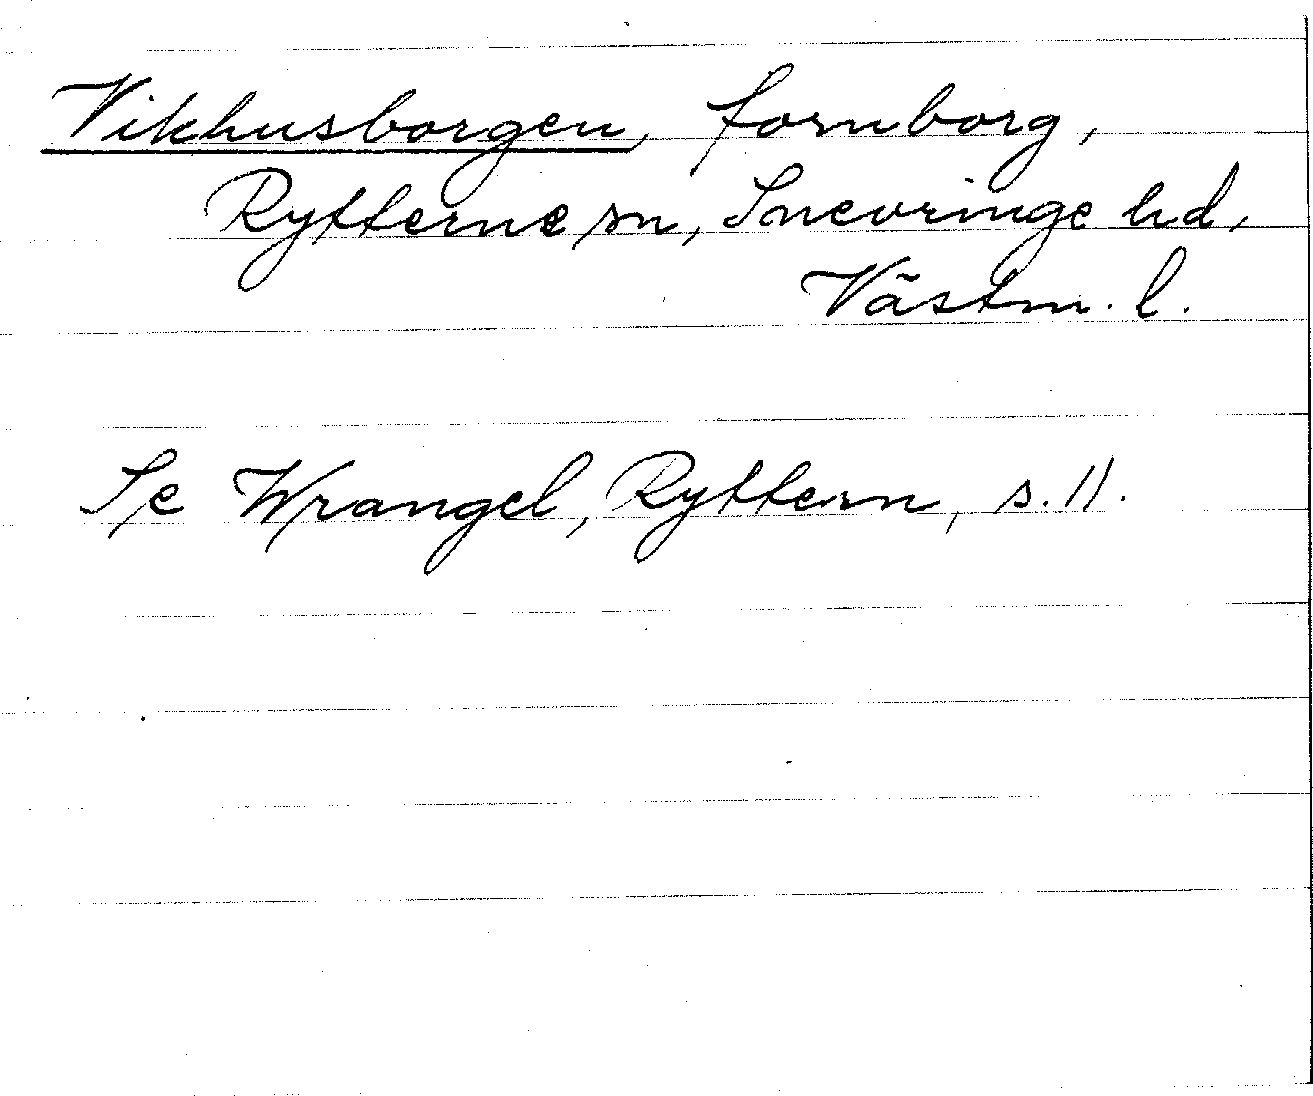 Vikhusborgen, fornborg,
Rytterne sn, Snevringe hd,
Västm. l.
Se Wrangel, Ryttern, s. 11.